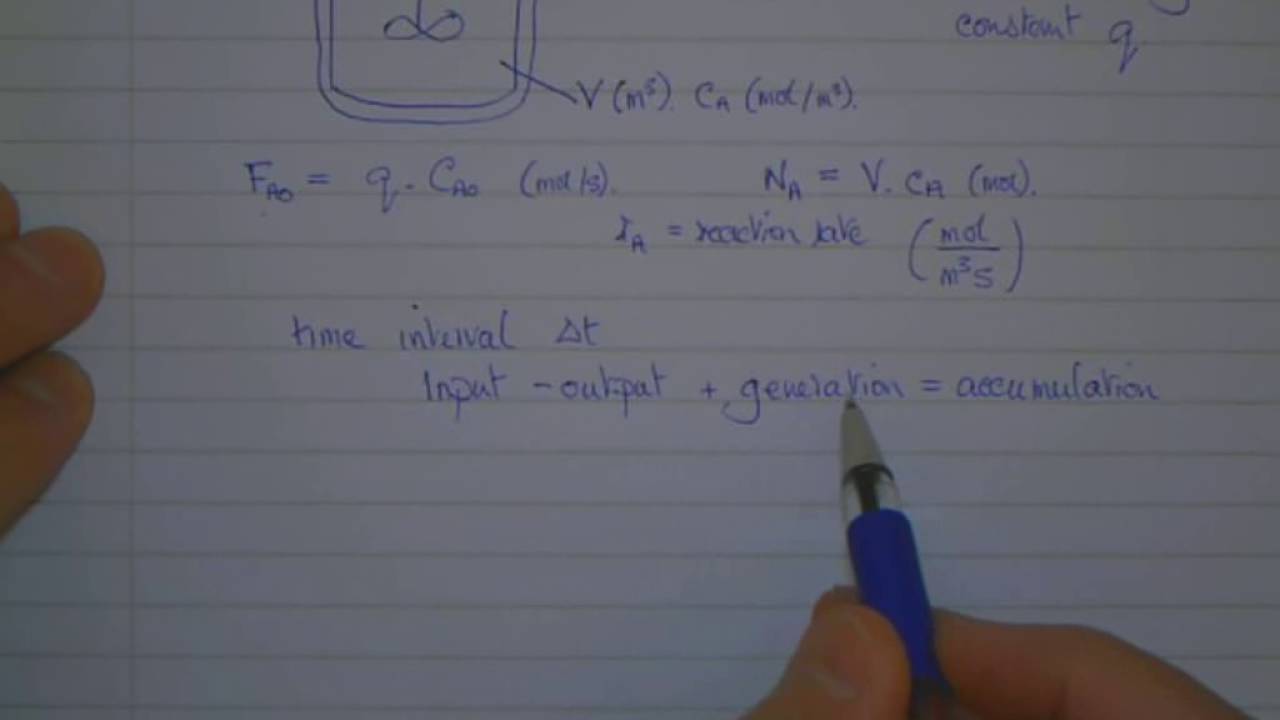 constant q
V (m³). CA (mol/m³).
FA0 = q. CA0 (mol/s).
NA = V. CA (mol).
rA = reaction rate (mol/m³s)
time interval Δt
Input - output + generation = accumulation